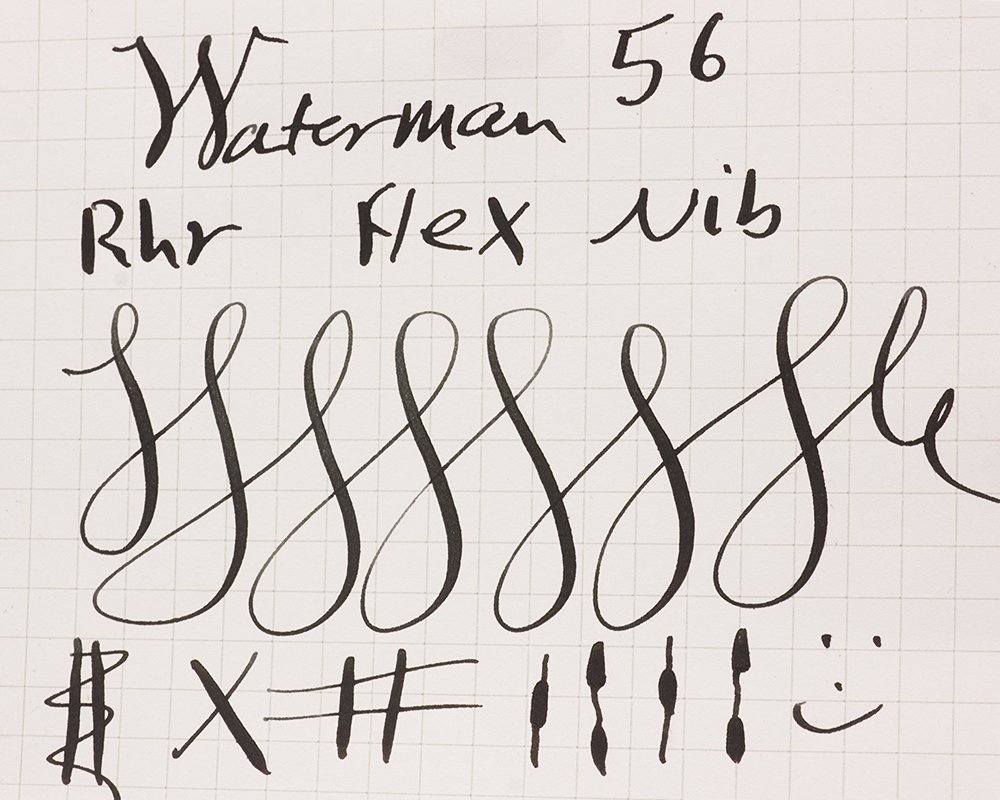 Waterman 56
Rhr Flex Nib
$ X # :)